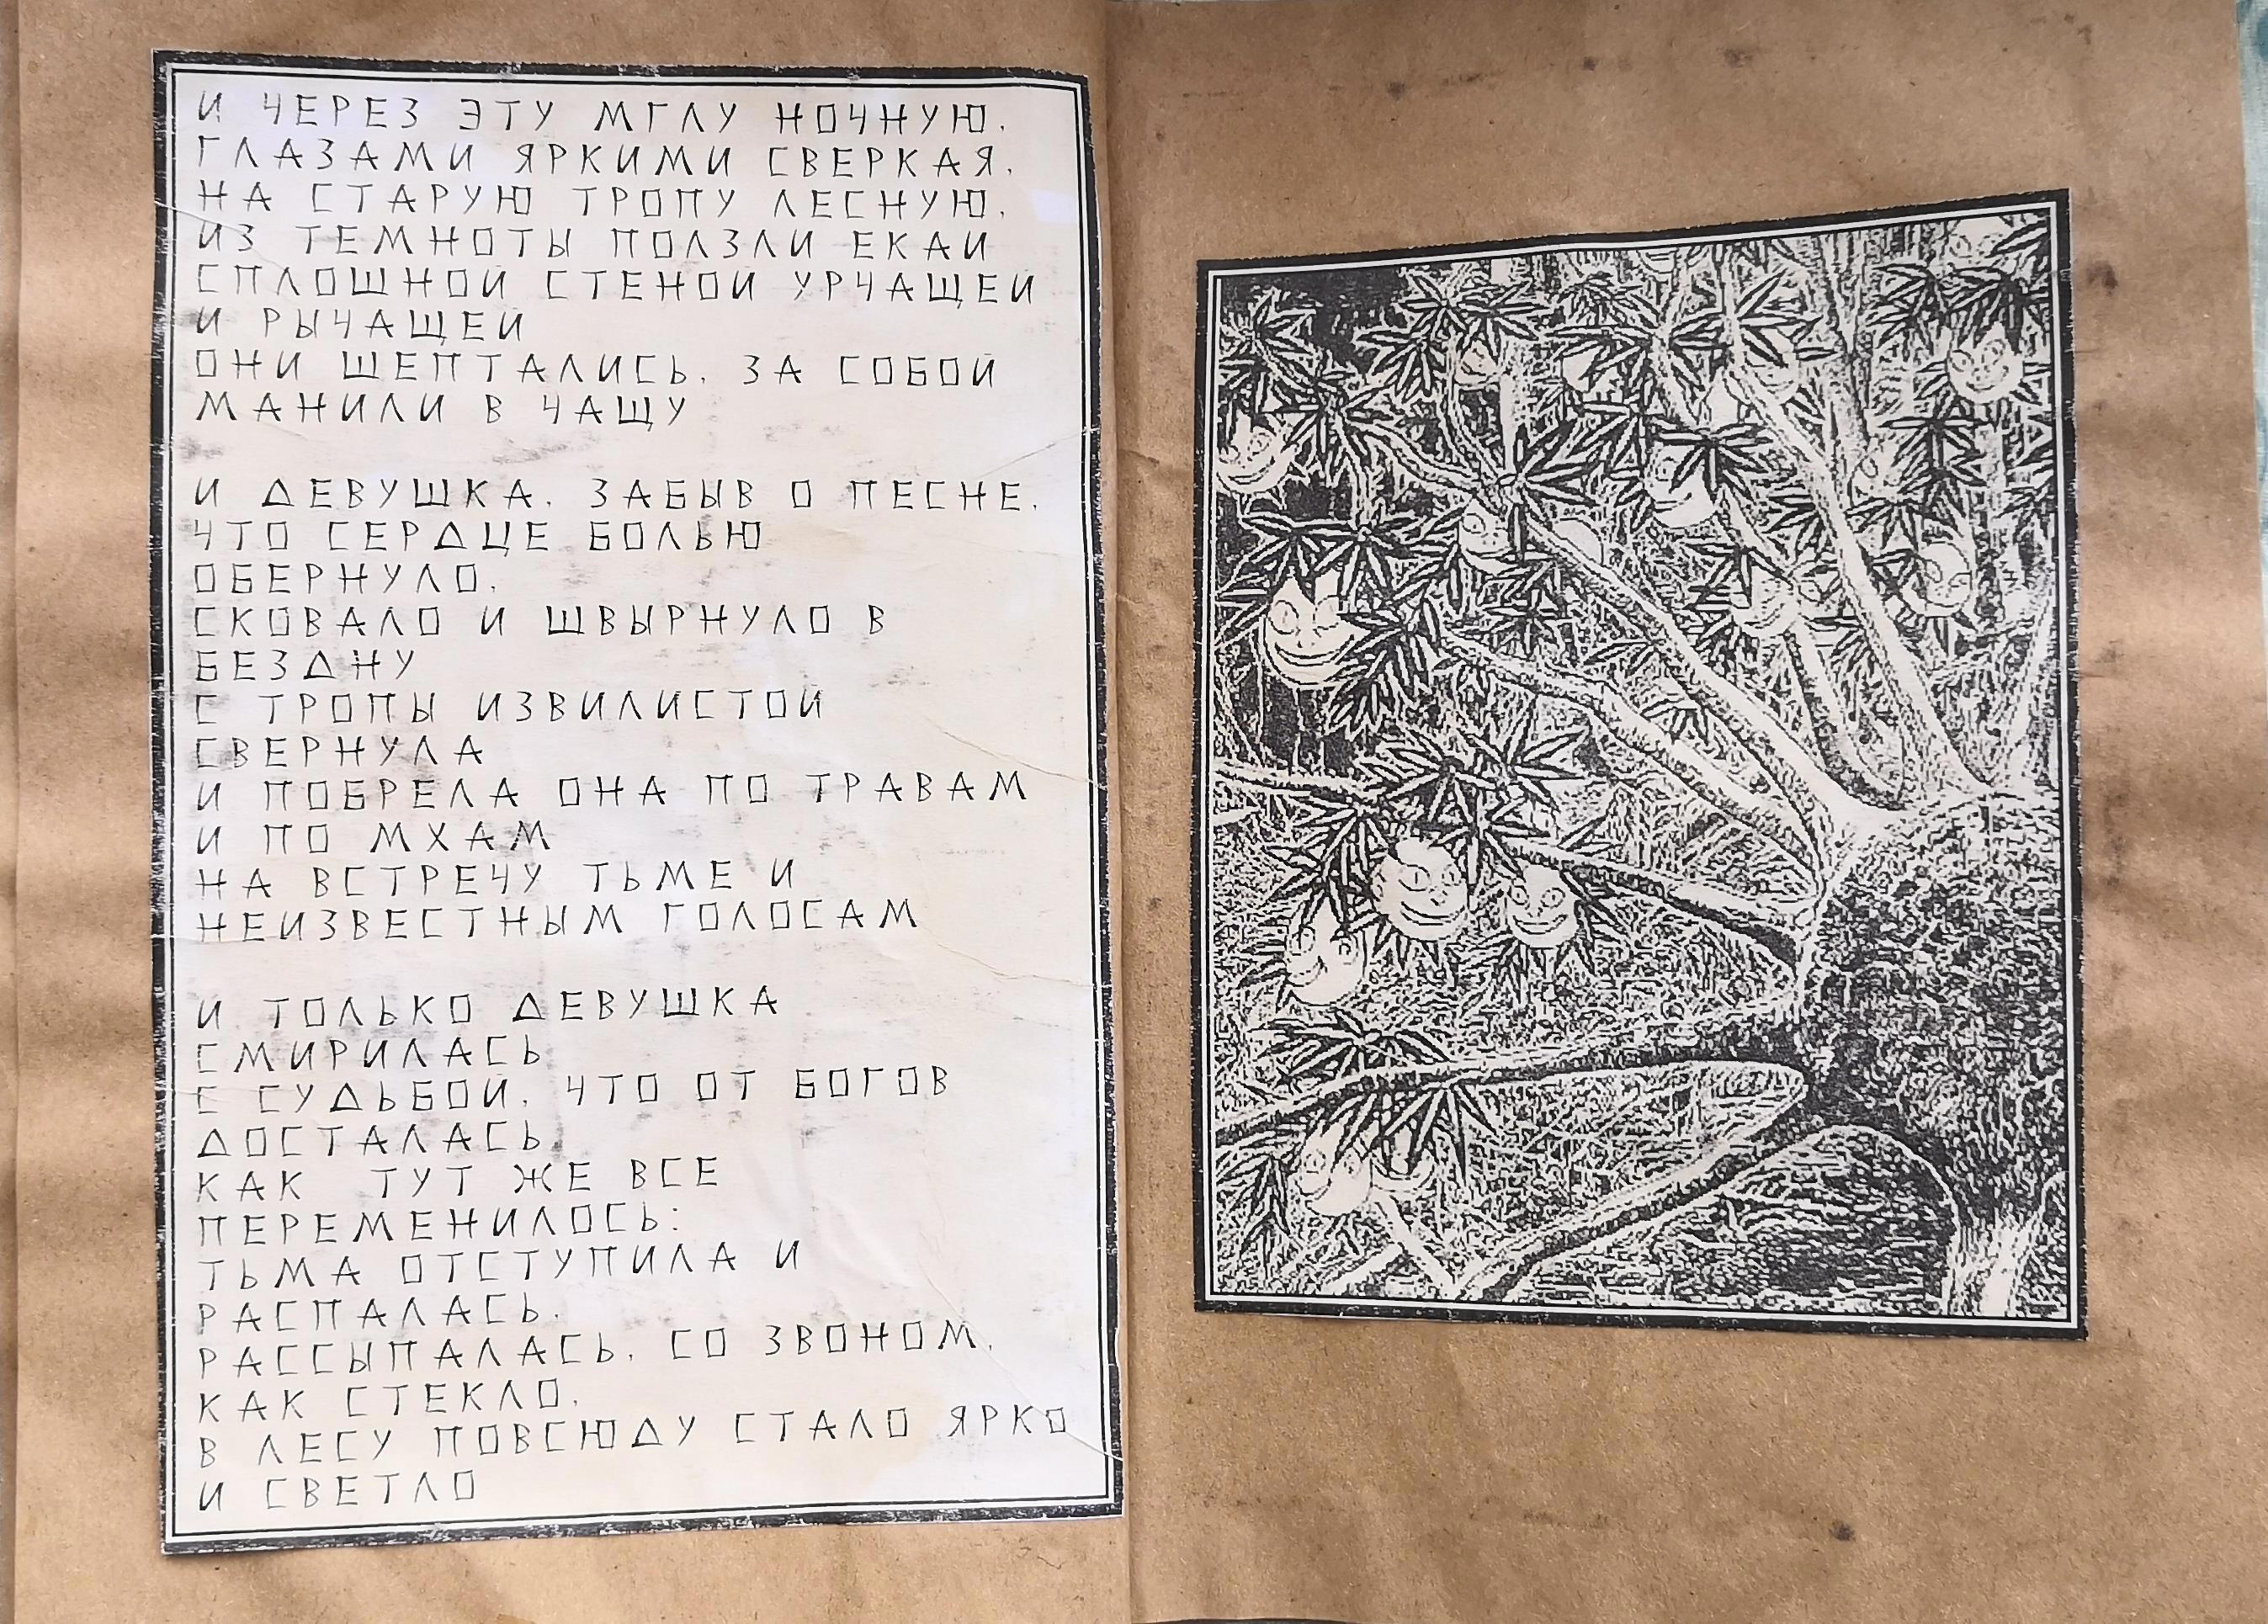 И ЧЕРЕЗ ЭТУ МГЛУ НОЧНУЮ,
ГЛАЗАМИ ЯРКИМИ СВЕРКАЯ,
НА СТАРУЮ ТРОПУ ЛЕСНУЮ,
ИЗ ТЕМНОТЫ ПОЛЗЛИ ЕКАИ
СПЛОШНОЙ СТЕНОЙ УРЧАЩЕЙ
И РЫЧАЩЕЙ
ОНИ ШЕПТАЛИСЬ, ЗА СОБОЙ
МАНИЛИ В ЧАЩУ
И ДЕВУШКА, ЗАБЫВ О ПЕСНЕ,
ЧТО СЕРДЦЕ БОЛЬЮ
ОБЕРНУЛО,
СКОВАЛО И ШВЫРНУЛО В
БЕЗДНУ
С ТРОПЫ ИЗВИЛИСТОЙ
СВЕРНУЛА
И ПОБРЕЛА ОНА ПО ТРАВАМ
И ПО МХАМ
НА ВСТРЕЧУ ТЬМЕ И
НЕИЗВЕСТНЫМ ГОЛОСАМ
И ТОЛЬКО ДЕВУШКА
СМИРИЛАСЬ
С СУДЬБОЙ, ЧТО ОТ БОГОВ
ДОСТАЛАСЬ,
КАК ТУТ ЖЕ ВСЕ
ПЕРЕМЕНИЛОСЬ:
ТЬМА ОТСТУПИЛА И
РАСПАЛАСЬ,
РАССЫПАЛАСЬ, СО ЗВОНОМ,
КАК СТЕКЛО,
В ЛЕСУ ПОВСЮДУ СТАЛО ЯРКО
И СВЕТЛО